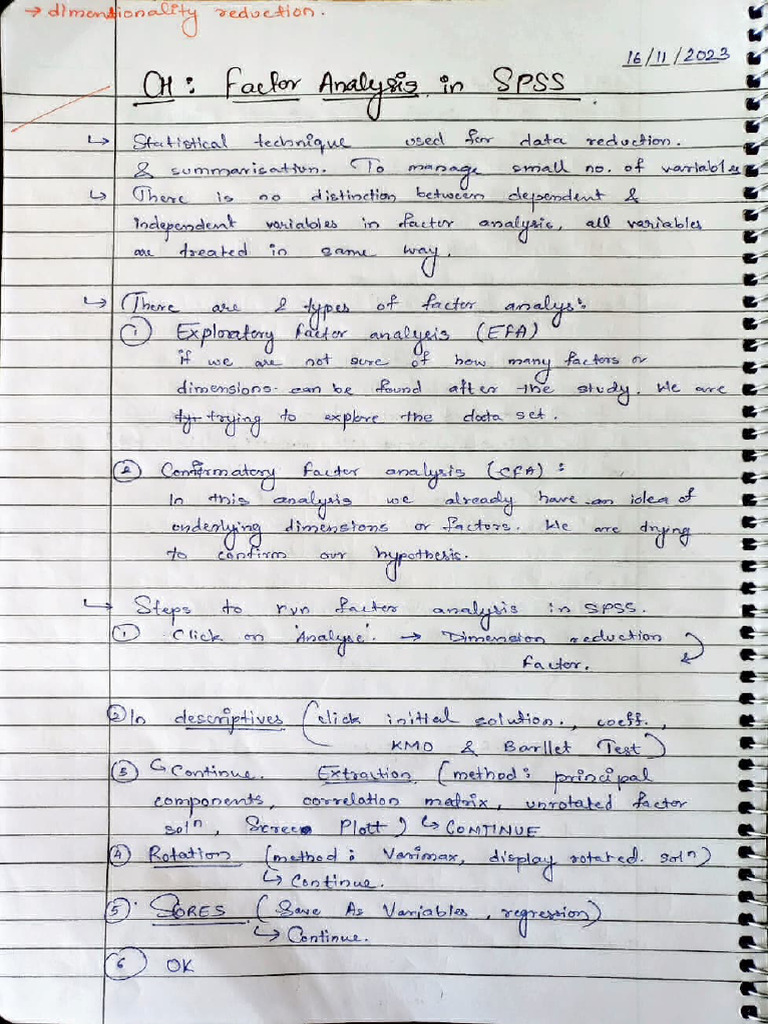 → dimentionality reduction.
16/11/2023
CH: Factor Analysis in SPSS.
↳ Statistical technique used for data reduction.
& summarisation. To manage small no. of variables
↳ There is no distinction between dependent &
independent variables in factor analysis, all variables
are treated in same way.
↳ There are 2 types of factor analys:
① Exploratory factor analysis (EFA)
if we are not sure of how many factors or
dimensions can be found after the study. We are
trying to explore the data set.
② Confirmatory factor analysis (CFA):
In this analysis we already have an idea of
underlying dimensions or factors. We are drying
to confirm our hypothesis.
↳ Steps to run factor analysis in SPSS.
① Click on 'Analyse'. → Dimension reduction
factor.
② In descriptives (click initial solution., coeff.,
KMO & Barllet Test)
③ ↳ Continue. Extraction (method: principal
components, correlation matrix, unrotated factor
solⁿ, Scree Plott) ↳ CONTINUE
④ Rotation (method: Varimax, display rotated. solⁿ)
↳ Continue.
⑤ SORES (Save As Variables, regression)
↳ Continue.
⑥ OK